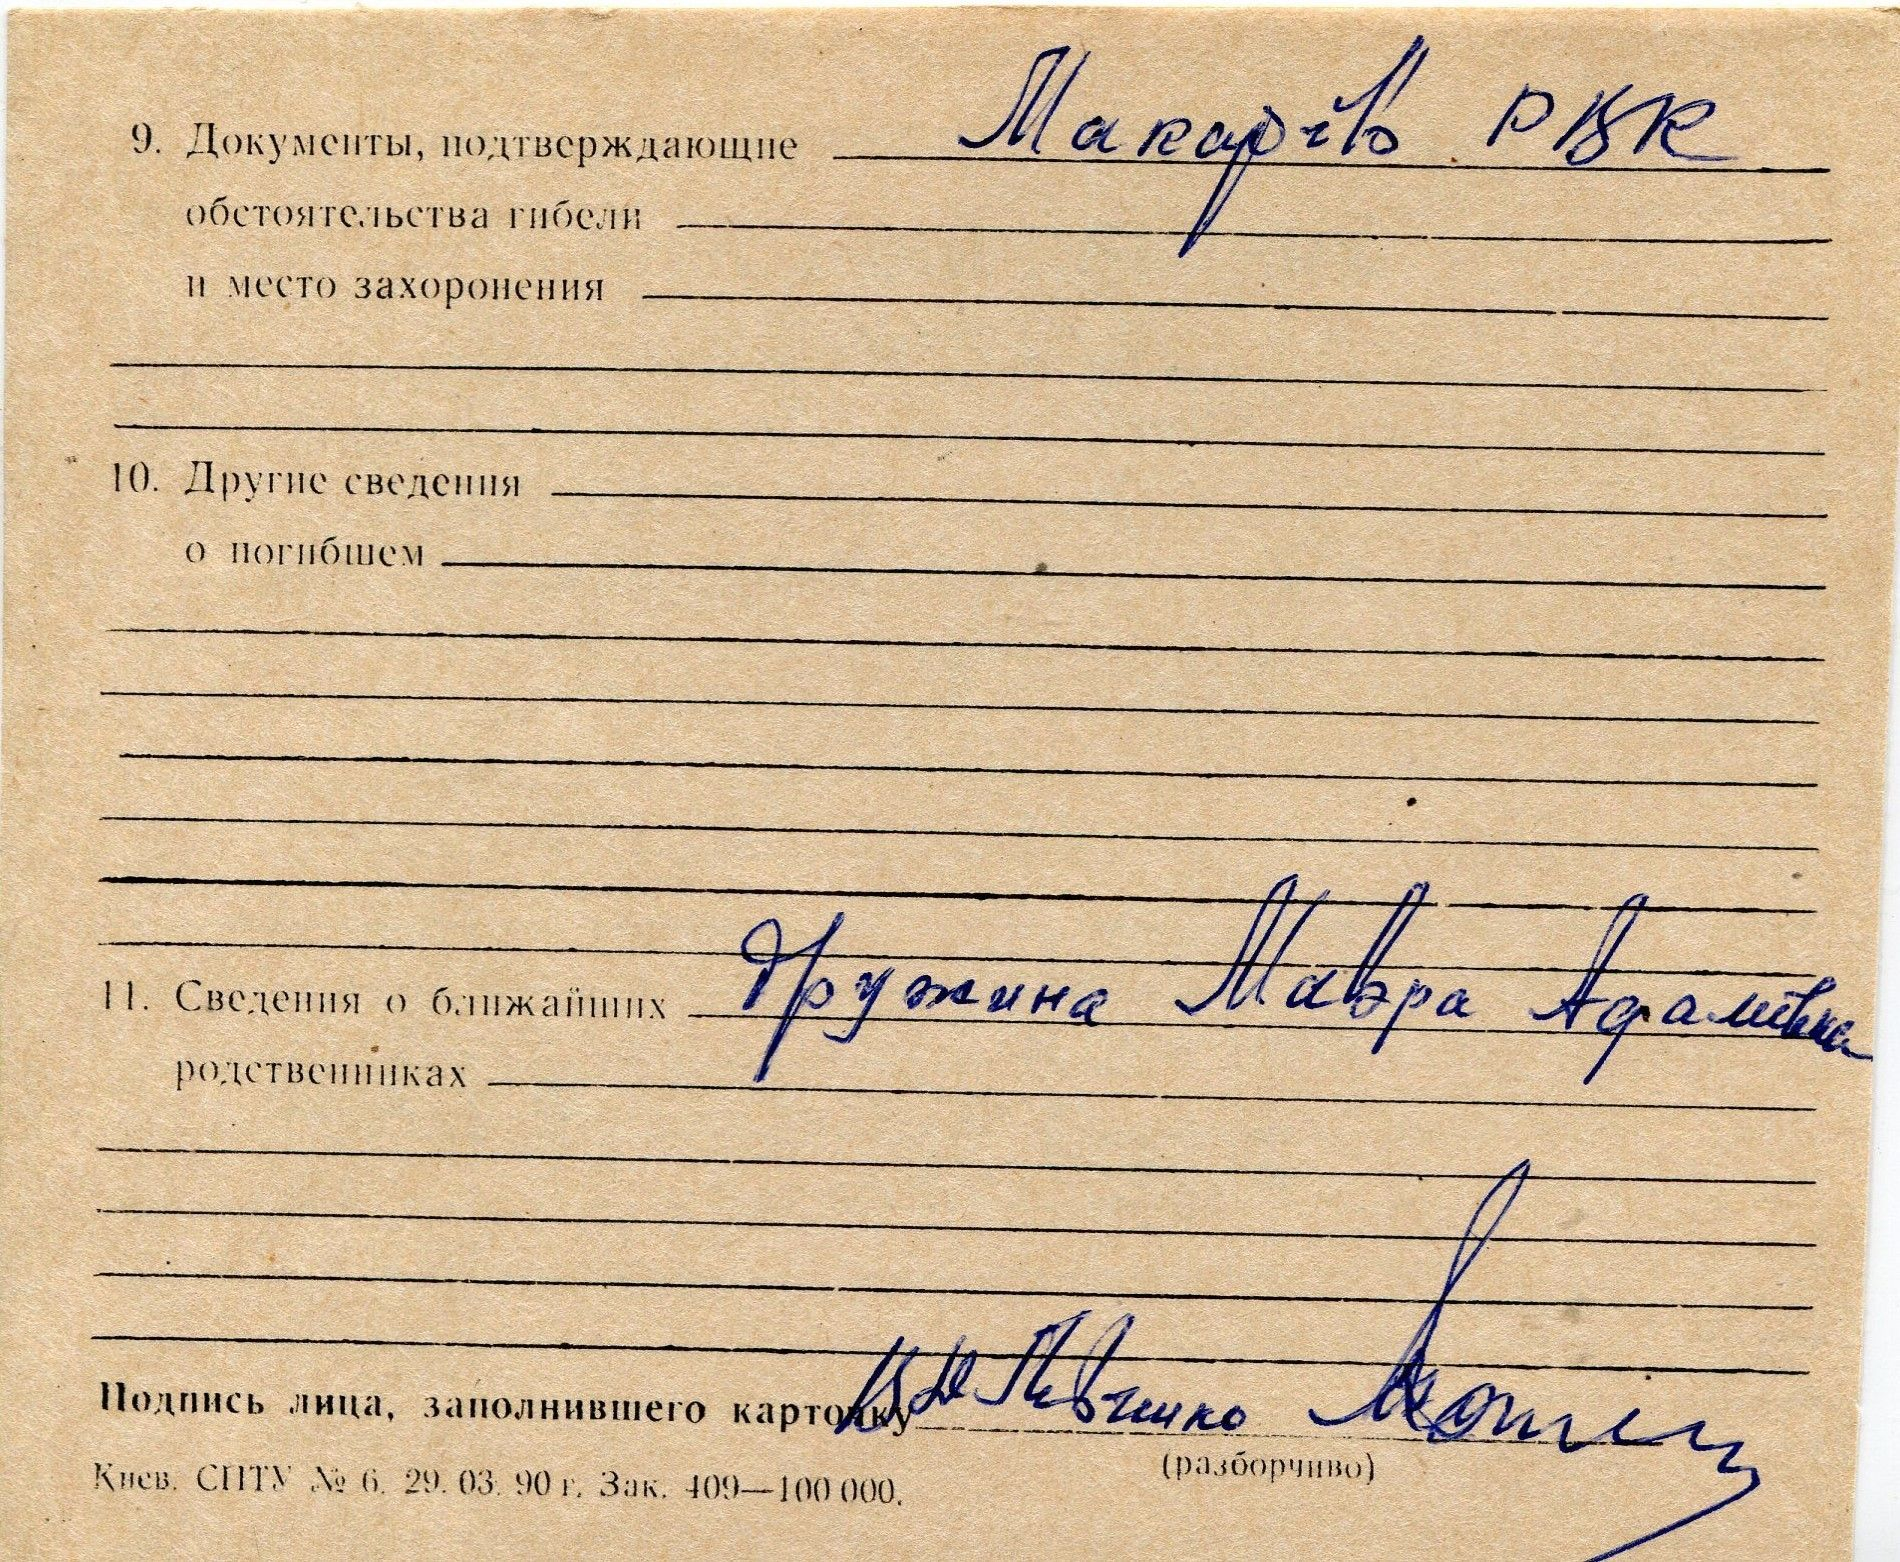 9. Документы, подтверждающие Макарів РВК
обстоятельства гибели
и место захоронения
10. Другие сведения
о погибшем
11. Сведения о ближайших дружина Мавра Адамівна
родственниках
Подпись лица, заполнившего карточку
(разборчиво)
Киев. СПТУ № 6. 29. 03. 90 г. Зак. 409—100 000.